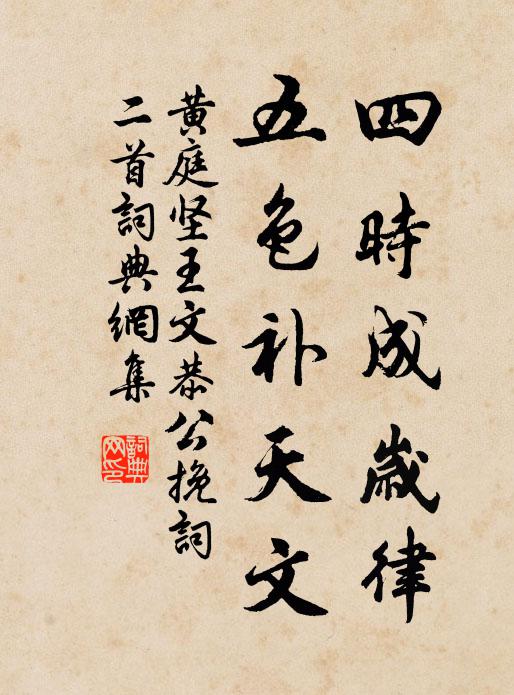 四時成歲律
五色补天文
黄庭坚王文恭公挽詞
二首詞典網集
詞典
网印